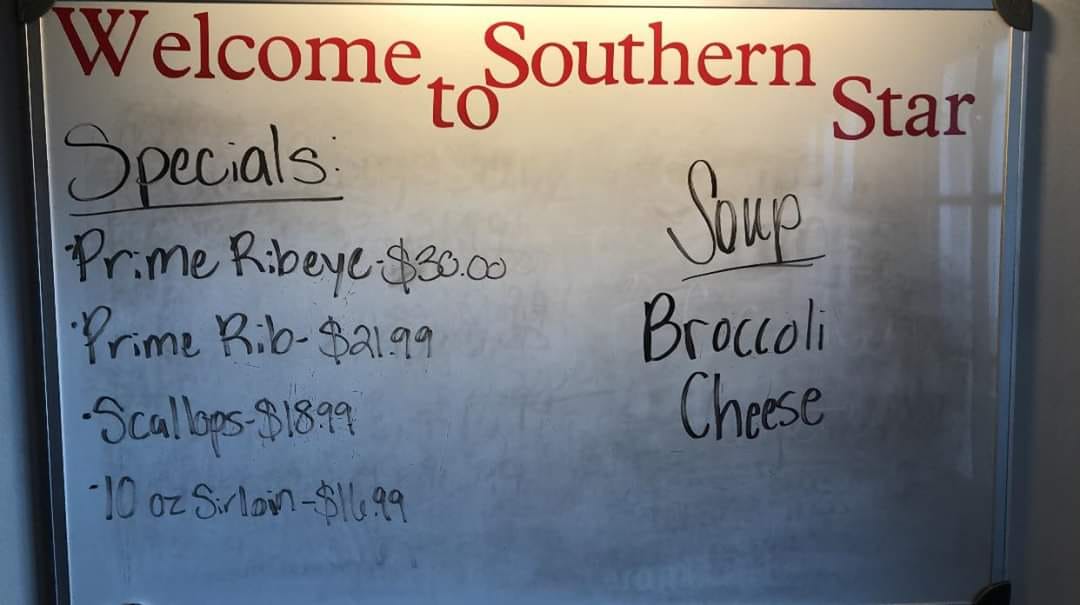 Welcome to Southern Star
Specials:
·Prime Ribeye-$30.00
·Prime Rib-$21.99
·Scallops-$18.99
-10 oz Sirloin-$16.99
Soup
Broccoli
Cheese